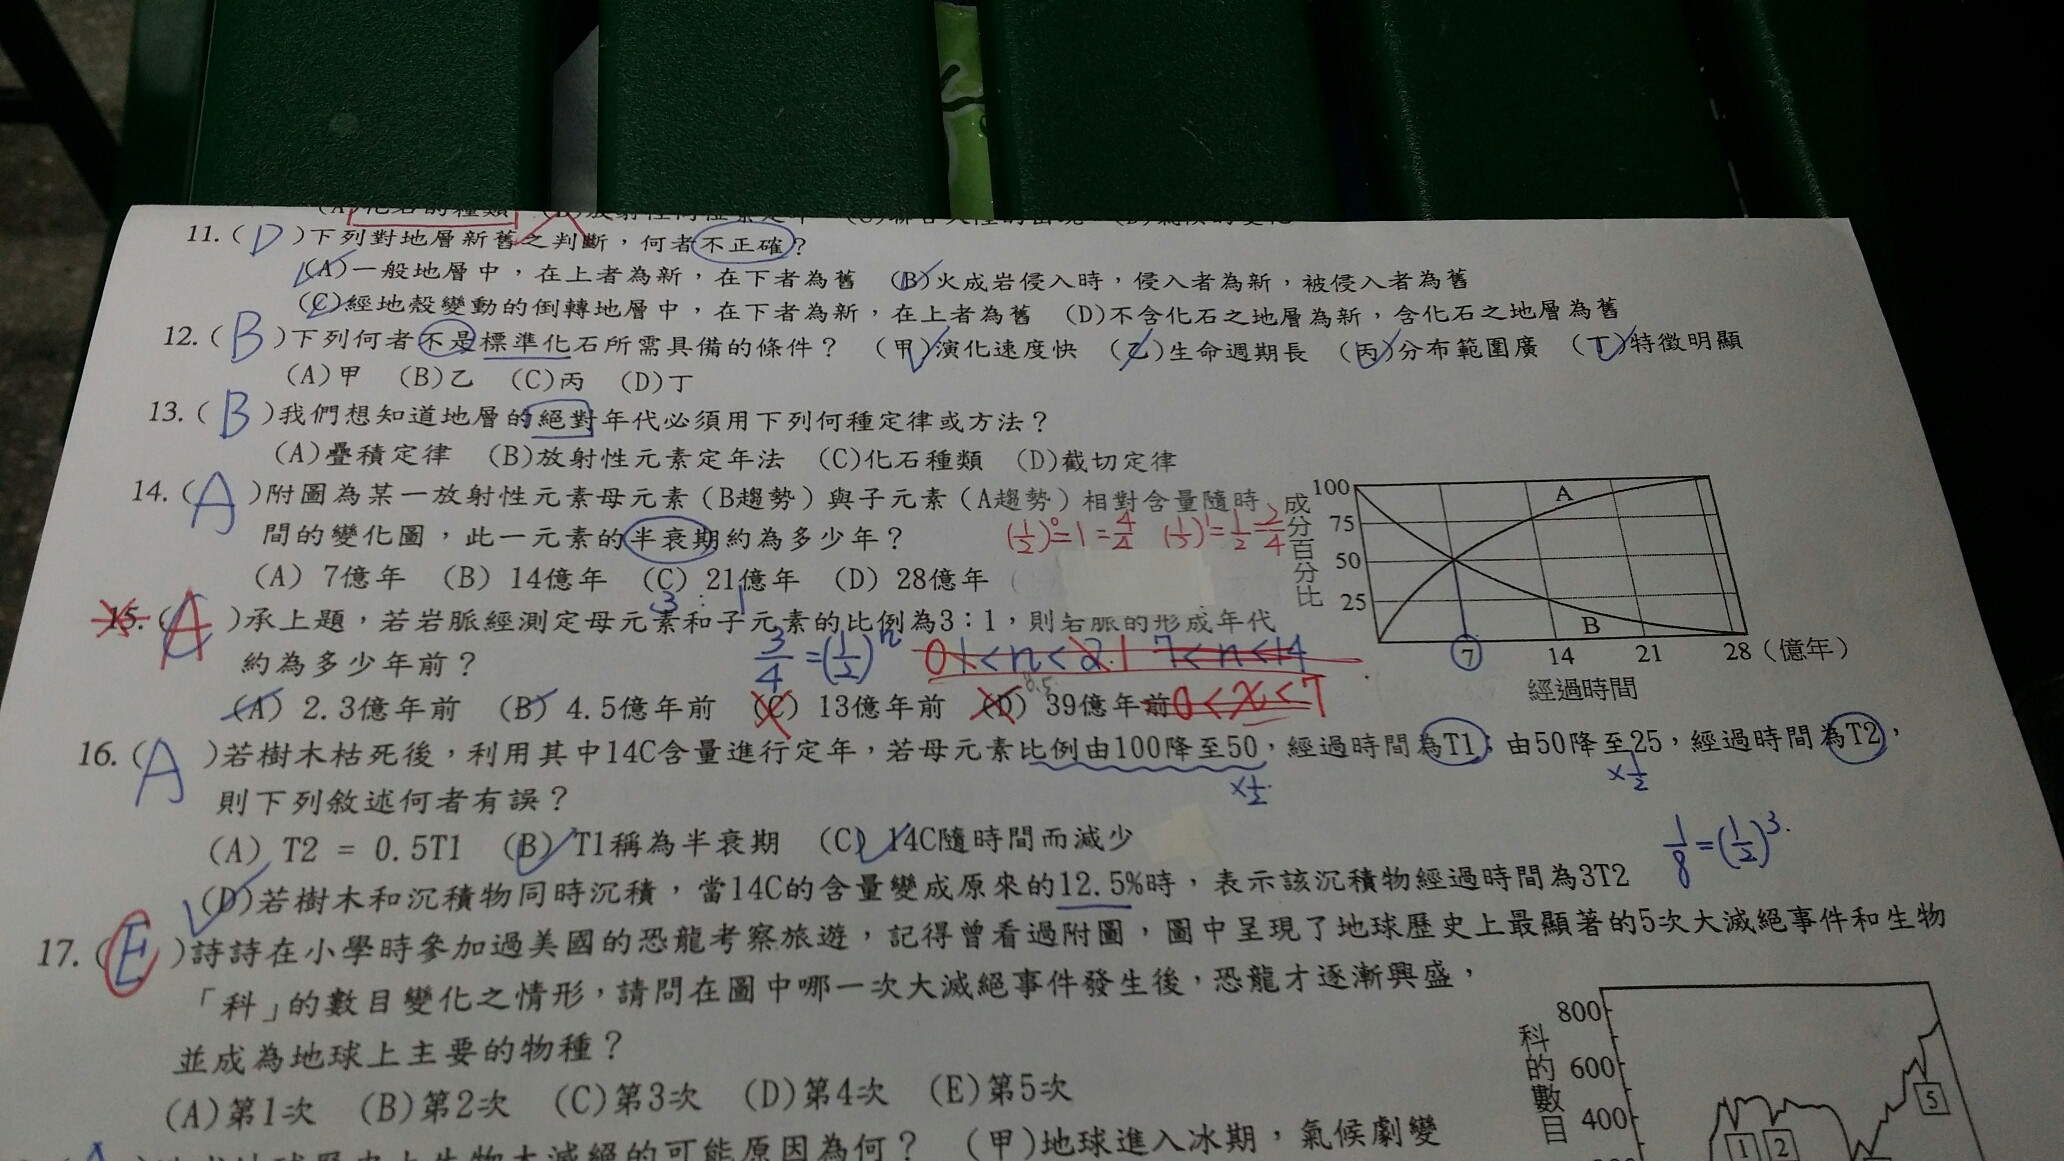 11.(D)下列對地層新舊之判斷，何者不正確？
(A)一般地層中，在上者為新，在下者為舊 (B)火成岩侵入時，侵入者為新，被侵入者為舊
(C)經地殼變動的倒轉地層中，在下者為新，在上者為舊 (D)不含化石之地層為新，含化石之地層為舊
12.(B)下列何者不是標準化石所需具備的條件？ (甲)演化速度快 (乙)生命週期長 (丙)分布範圍廣 (丁)特徵明顯
(A)甲 (B)乙 (C)丙 (D)丁
13.(B)我們想知道地層的絕對年代必須用下列何種定律或方法？
(A)疊積定律 (B)放射性元素定年法 (C)化石種類 (D)截切定律
14.(A)附圖為某一放射性元素母元素(B趨勢)與子元素(A趨勢)相對含量隨時
間的變化圖，此一元素的半衰期約為多少年？
(1/2)^0=1=4/4 (1/2)^1=1/2=2/4
(A) 7億年 (B) 14億年 (C) 21億年 (D) 28億年
3 : 1
15.(A)承上題，若岩脈經測定母元素和子元素的比例為3：1，則岩脈的形成年代
約為多少年前？
3/4=(1/2)^n
7<n<14
(A) 2.3億年前 (B) 4.5億年前 (C) 13億年前 (D) 39億年前
0<x<7
成分百分比
100
75
50
25
A
B
7 14 21 28(億年)
經過時間
16.(A)若樹木枯死後，利用其中14C含量進行定年，若母元素比例由100降至50，經過時間為T1；由50降至25，經過時間為T2，
×1/2 ×1/2
則下列敘述何者有誤？
(A) T2 = 0.5T1 (B) T1稱為半衰期 (C) 14C隨時間而減少
1/8=(1/2)^3
(D)若樹木和沉積物同時沉積，當14C的含量變成原來的12.5%時，表示該沉積物經過時間為3T2
17.(E)詩詩在小學時參加過美國的恐龍考察旅遊，記得曾看過附圖，圖中呈現了地球歷史上最顯著的5次大滅絕事件和生物
「科」的數目變化之情形，請問在圖中哪一次大滅絕事件發生後，恐龍才逐漸興盛，
並成為地球上主要的物種？
(A)第1次 (B)第2次 (C)第3次 (D)第4次 (E)第5次
科的數目
800
600
400
1 2 5
(甲)地球進入冰期，氣候劇變